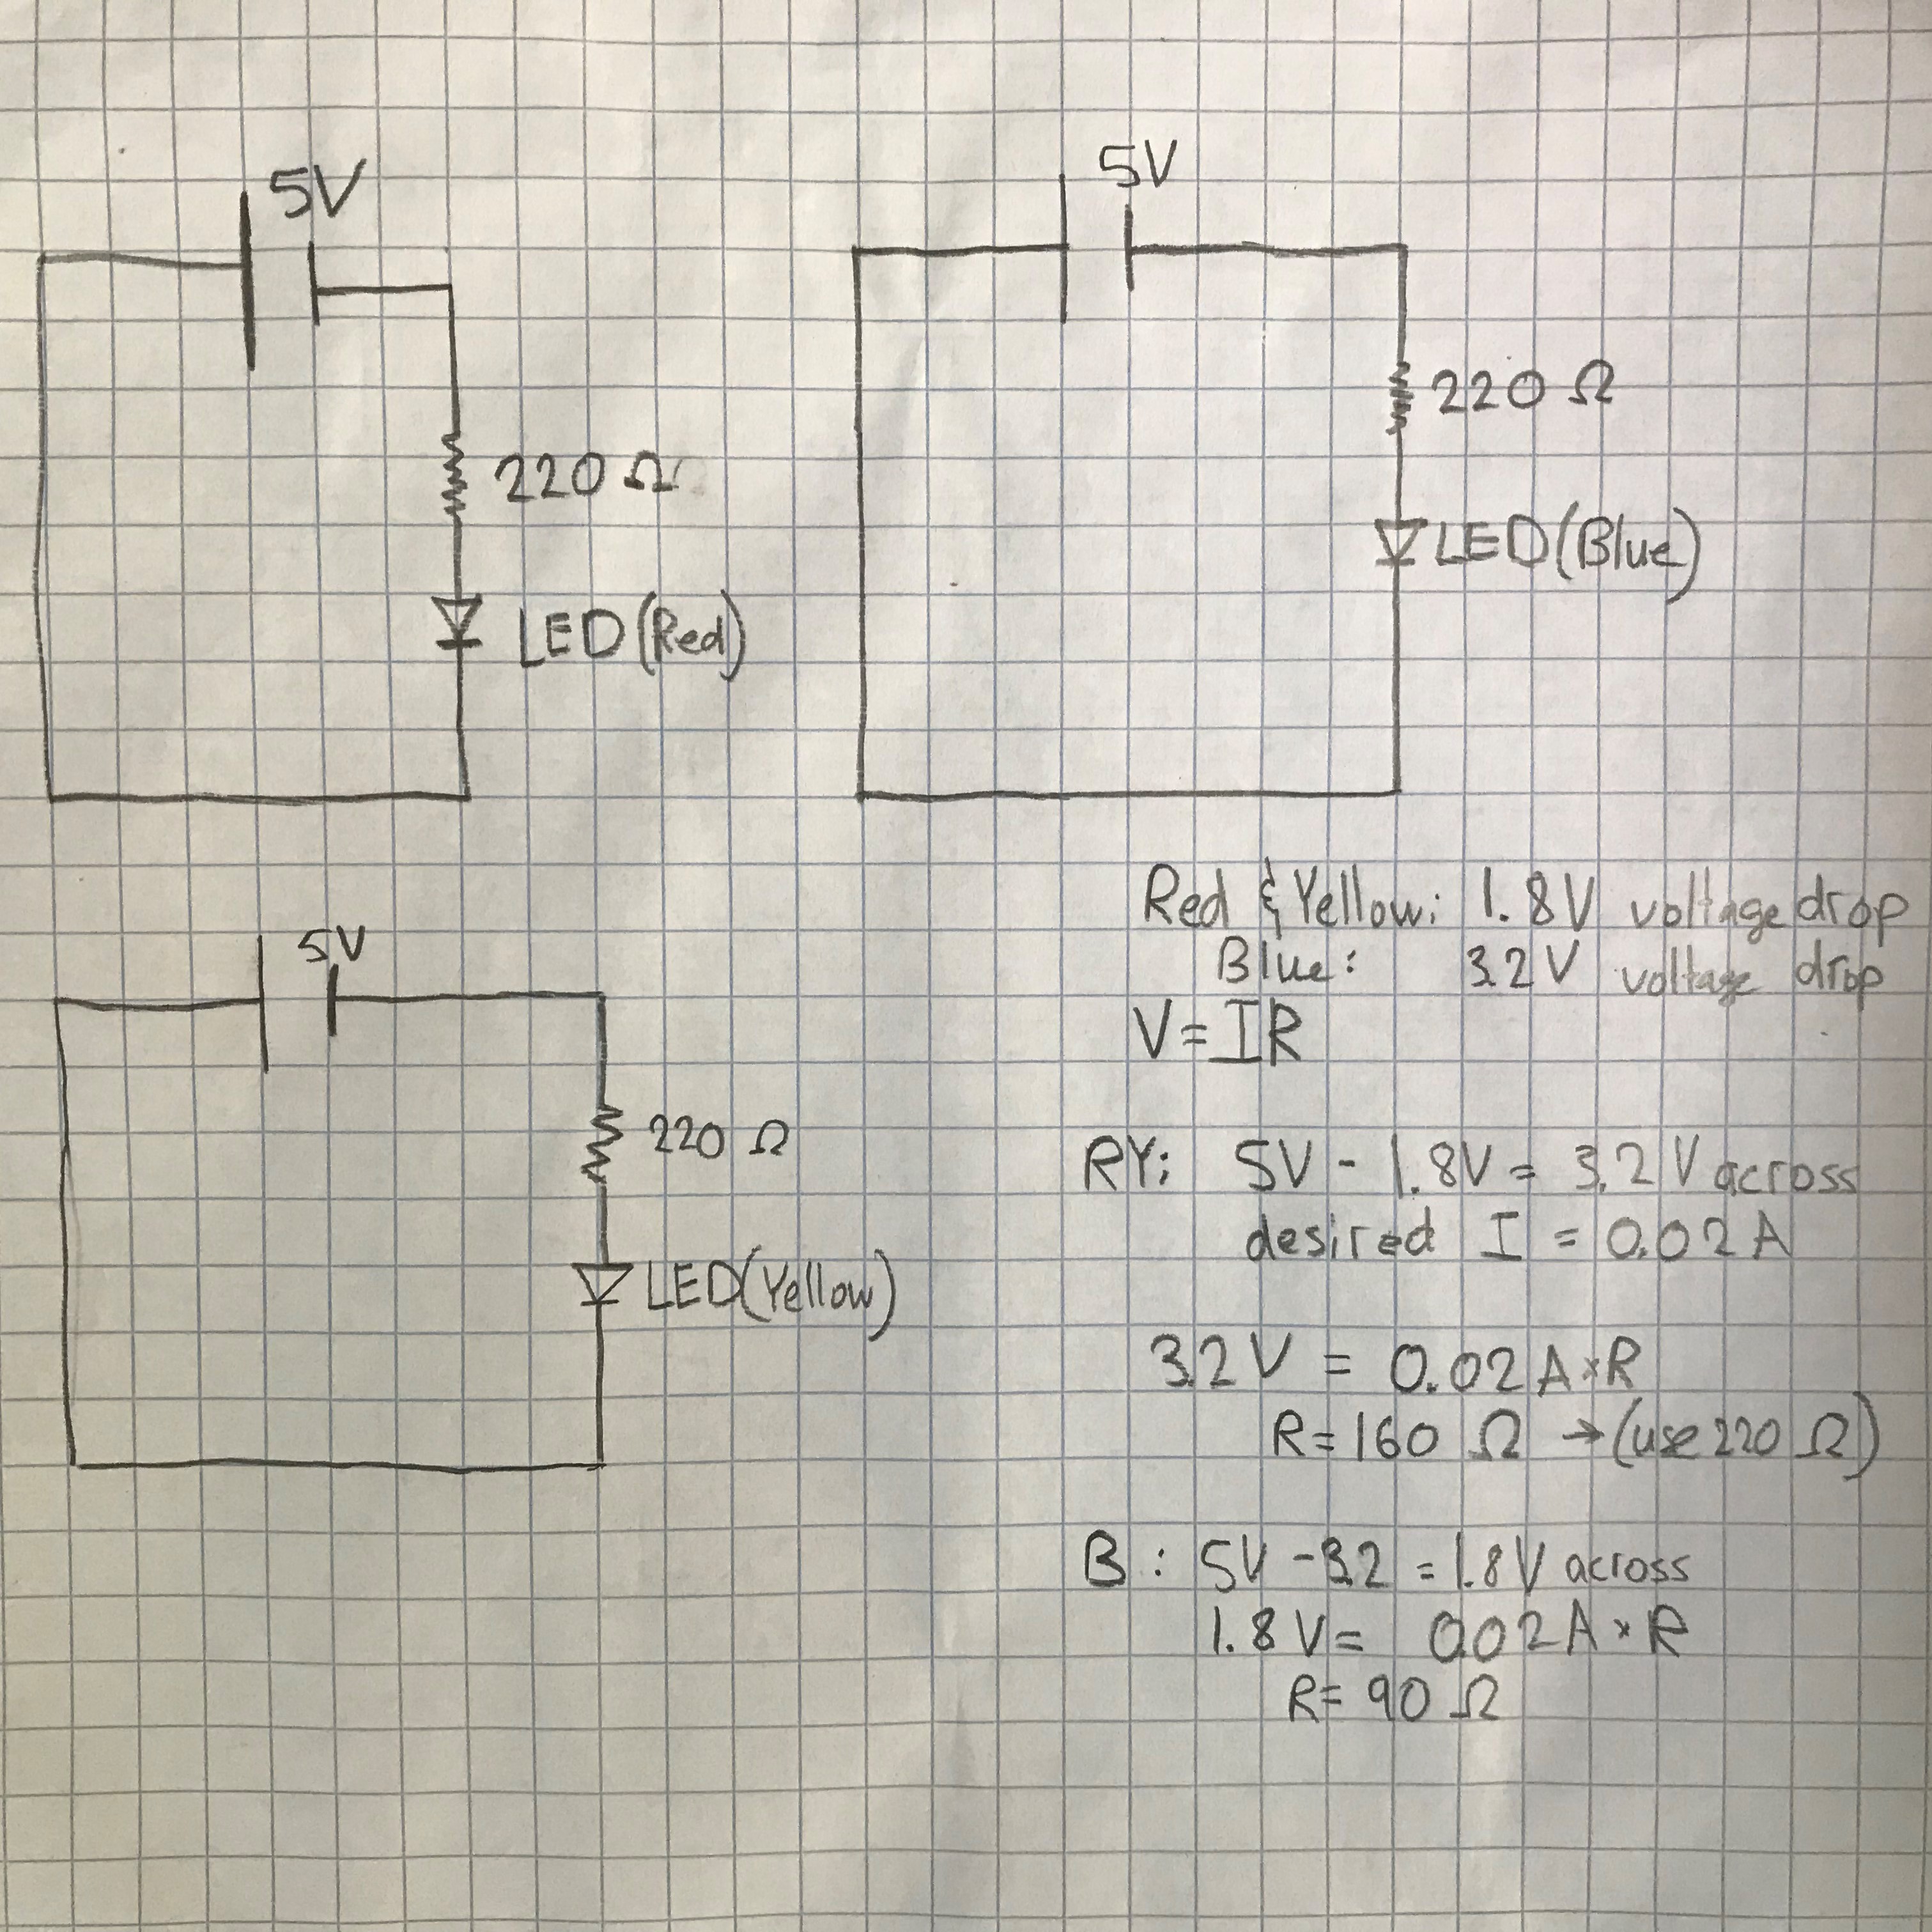 5V
220 Ω
LED (Red)
5V
220 Ω
LED (Blue)
5V
220 Ω
LED (Yellow)
Red & Yellow: 1.8V voltage drop
Blue: 3.2V voltage drop
V = IR
RY: 5V - 1.8V = 3.2 V across
desired I = 0.02 A
3.2 V = 0.02 A × R
R = 160 Ω → (use 220 Ω)
B : 5V - 3.2 = 1.8 V across
1.8 V = 0.02 A × R
R = 90 Ω